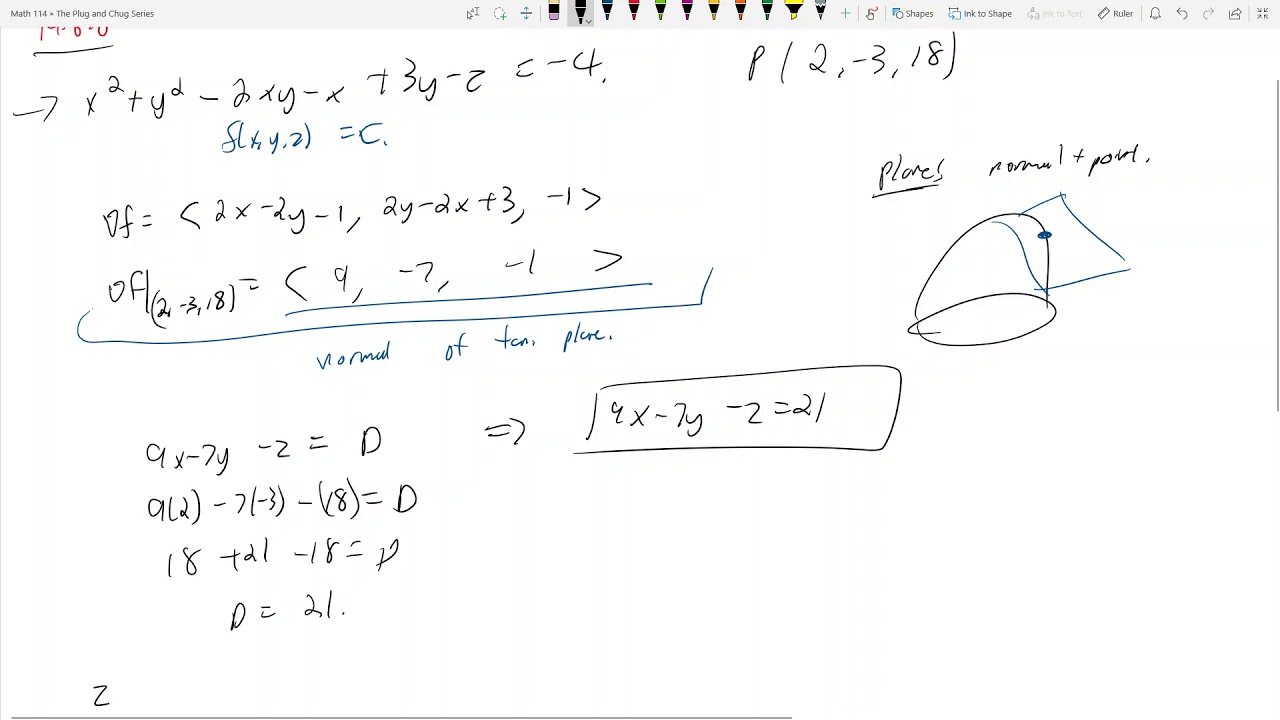 Math 114 » The Plug and Chug Series
Shapes
Ink to Shape
Ink to Text
Ruler
14.6.6
→ x² + y² - 2xy - x + 3y - z = -4.
P(2, -3, 18)
f(x, y, z) = C.
Planes normal + point.
∇f = < 2x - 2y - 1, 2y - 2x + 3, -1 >
∇f|(2, -3, 18) = < 9, -7, -1 >
normal of tan. plane.
9x - 7y - z = D ⇒ 9x - 7y - z = 21
9(2) - 7(-3) - (18) = D
18 + 21 - 18 = D
D = 21.
z